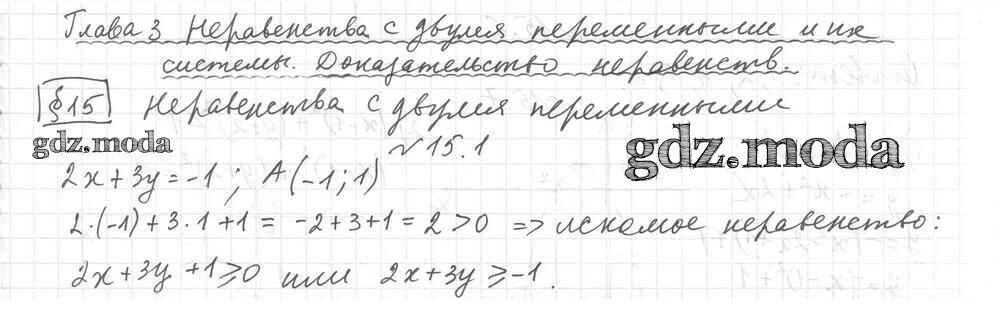 Глава 3 Неравенства с двумя переменными и их
системы. Доказательство неравенств.
§15 Неравенства с двумя переменными
gdz.moda
№15.1
gdz.moda
2x+3y=-1; A(-1;1)
2·(-1)+3·1+1 = -2+3+1=2>0 => искомое неравенство:
2x+3y+1⩾0 или 2x+3y⩾-1.